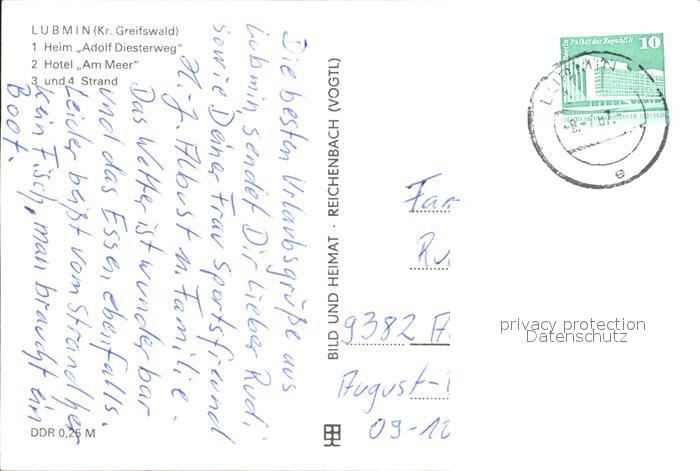 LUBMIN (Kr. Greifswald)
1 Heim „Adolf Diesterweg"
2 Hotel „Am Meer"
3 und 4 Strand
Die besten Urlaubsgrüße aus
Lubmin sendet Dir lieber Rudi
sowie Deiner Frau Sportsfreund
H.-J. Albust u. Familie.
Das Wetter ist wunderbar
und das Essen ebenfalls.
Leider beißt vom Strand her
kein Fisch, man braucht ein
Boot.
DDR 0,25 M
BILD UND HEIMAT · REICHENBACH (VOGTL)
Berlin Palast der Republik 10
DEUTSCHE DEMOKRATISCHE REPUBLIK
LUBMIN
e
Fam
Ru
9382
August-
09-10
privacy protection
Datenschutz